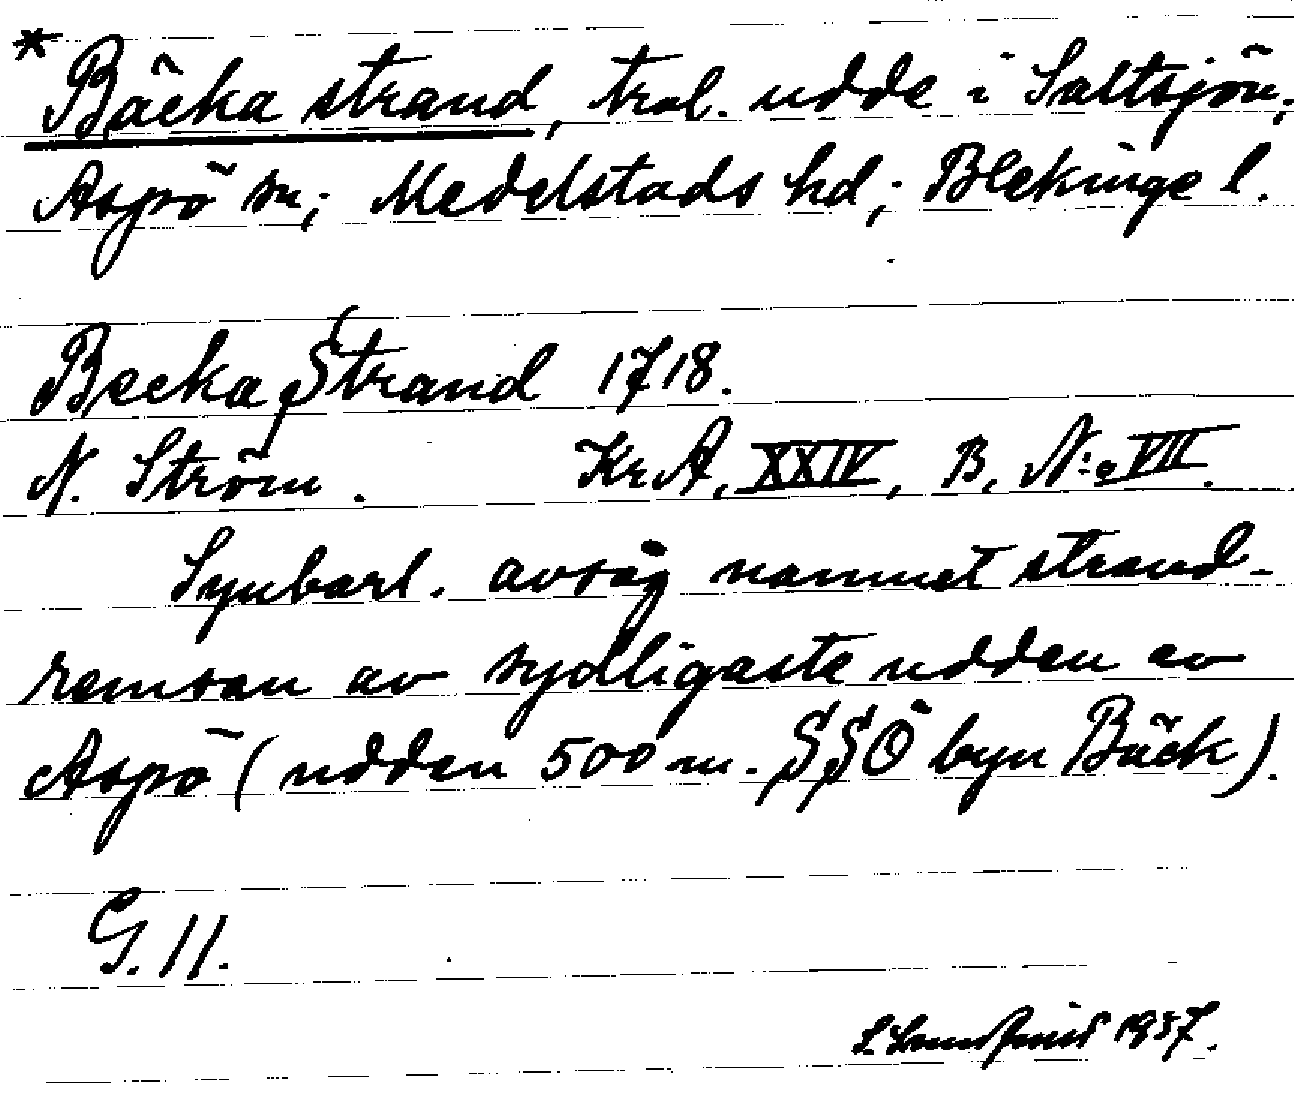 *Bäcka strand, trol. udde i Saltsjön;
Aspö sn; Medelstads hd; Blekinge l.
Becka Strand 1718.
N. Ström. Kr.A, XXIV, B, N:o VII.
Synbarl. avsåg namnet strand-
remsan av sydligaste udden av
Aspö (udden 500 m. SSÖ byn Bäck).
G. 11.
1937.